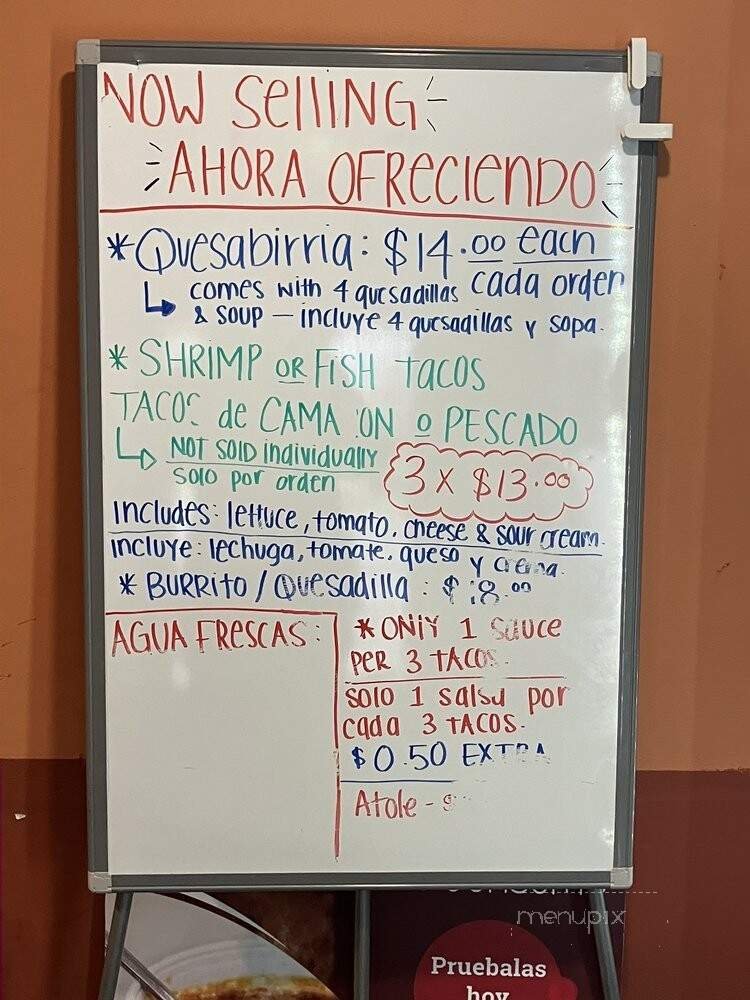 NOW SellING
AHORA OFRECIENDO
* Quesabirria: $14.00 each
cada orden
comes with 4 quesadillas
& soup - incluye 4 quesadillas y sopa.
* SHRIMP OR FISH tacos
TACOS de CAMA ON o PESCADO
NOT SOLD individually
solo por orden
3 x $13.00
Includes: lettuce, tomato, cheese & sour cream.
incluye: lechuga, tomate, queso y crema.
* BURRITO / Quesadilla : $ 8.00
AGUA FRESCAS:
* ONLY 1 sauce
PER 3 TACOS.
SOlO 1 salsa por
cada 3 tacos.
$0.50 EXTRA
Atole -
menupix
Pruebalas
hoy